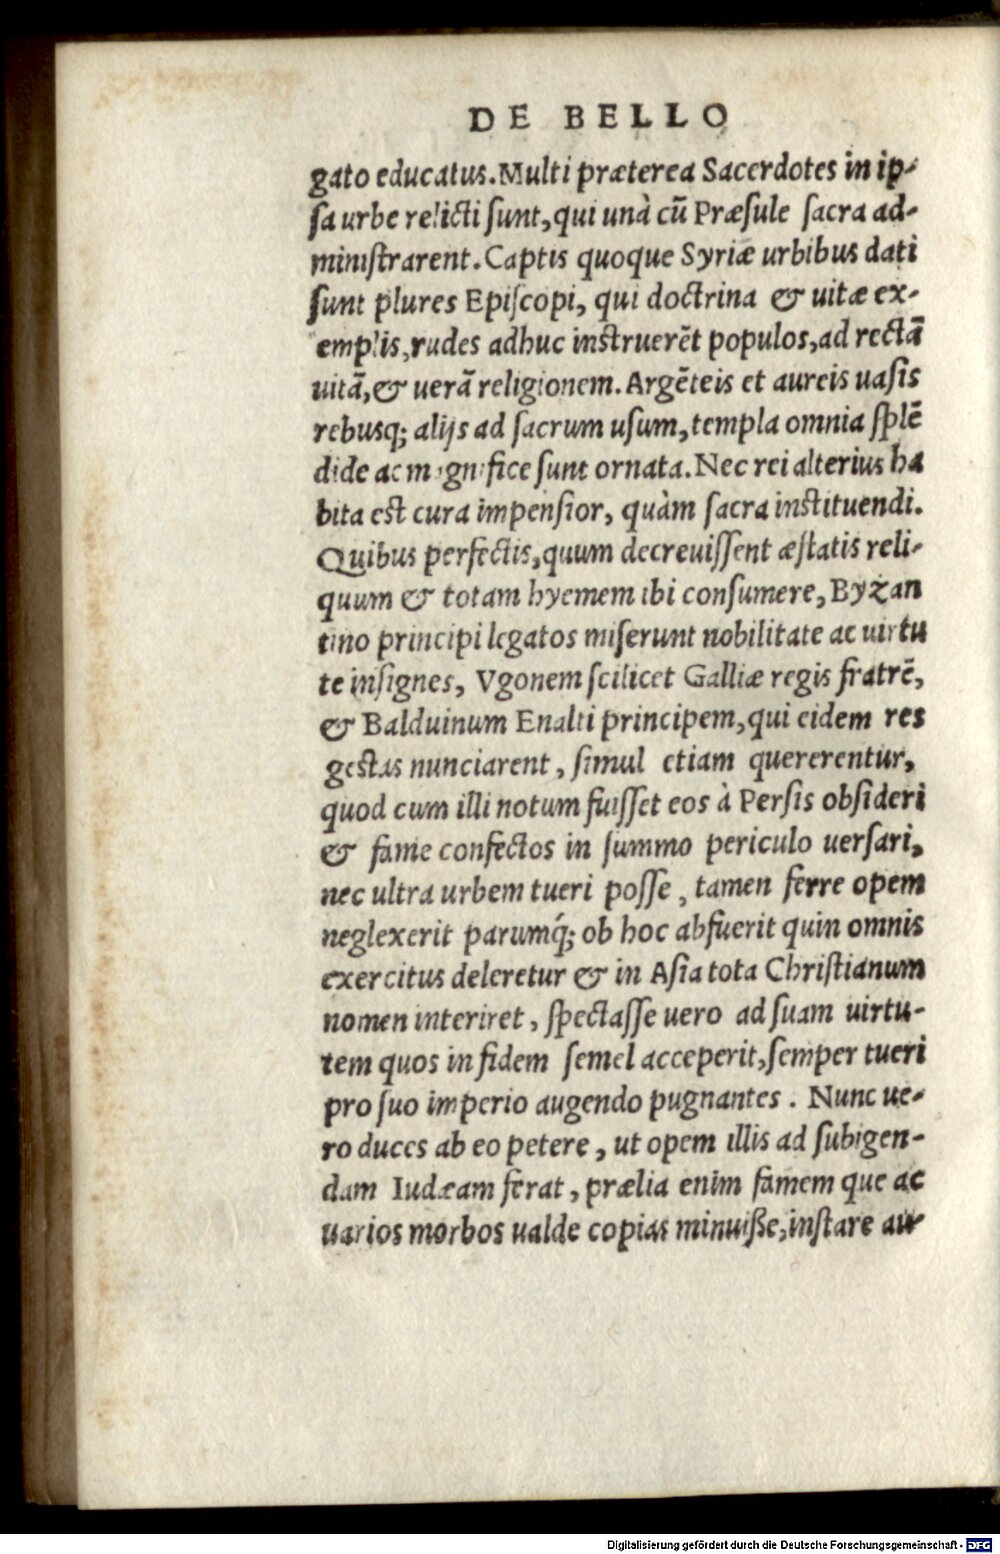 DE BELLO
gato educatus. Multi præterea Sacerdotes in ip-
sa urbe relicti sunt, qui unà cū Præsule sacra ad-
ministrarent. Captis quoque Syriæ urbibus dati
sunt plures Episcopi, qui doctrina & uitæ ex-
emplis, rudes adhuc instruerēt populos, ad rectā
uitā, & uerā religionem. Argēteis et aureis uasis
rebusq; alijs ad sacrum usum, templa omnia splē
dide ac magnifice sunt ornata. Nec rei alterius ha
bita est cura impensior, quàm sacra instituendi.
Quibus perfectis, quum decreuissent æstatis reli-
quum & totam hyemem ibi consumere, Byzan
tino principi legatos miserunt nobilitate ac uirtu
te insignes, Vgonem scilicet Galliæ regis fratrē,
& Balduinum Enalti principem, qui eidem res
gestas nunciarent, simul etiam quererentur,
quod cum illi notum fuisset eos à Persis obsideri
& fame confectos in summo periculo uersari,
nec ultra urbem tueri posse, tamen ferre opem
neglexerit parumq́; ob hoc abfuerit quin omnis
exercitus deleretur & in Asia tota Christianum
nomen interiret, spectasse uero ad suam uirtu-
tem quos in fidem semel acceperit, semper tueri
pro suo imperio augendo pugnantes. Nunc ue-
ro duces ab eo petere, ut opem illis ad subigen-
dam Iudæam ferat, prælia enim famem que ac
uarios morbos ualde copias minuisse, instare au-
Digitalisierung gefördert durch die Deutsche Forschungsgemeinschaft - DFG